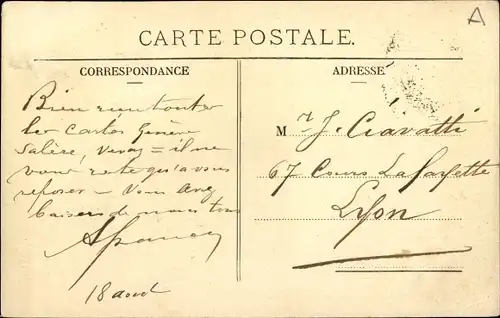 CARTE POSTALE.
CORRESPONDANCE
Bien reçu toutes
les cartes Genève
Salève, Vevey = il ne
vous reste qu'à vous
reposer – Vous avez
baisers de nous tous
18 août
ADRESSE
M r J. Ciavatti
67 Cours Lafayette
Lyon
A